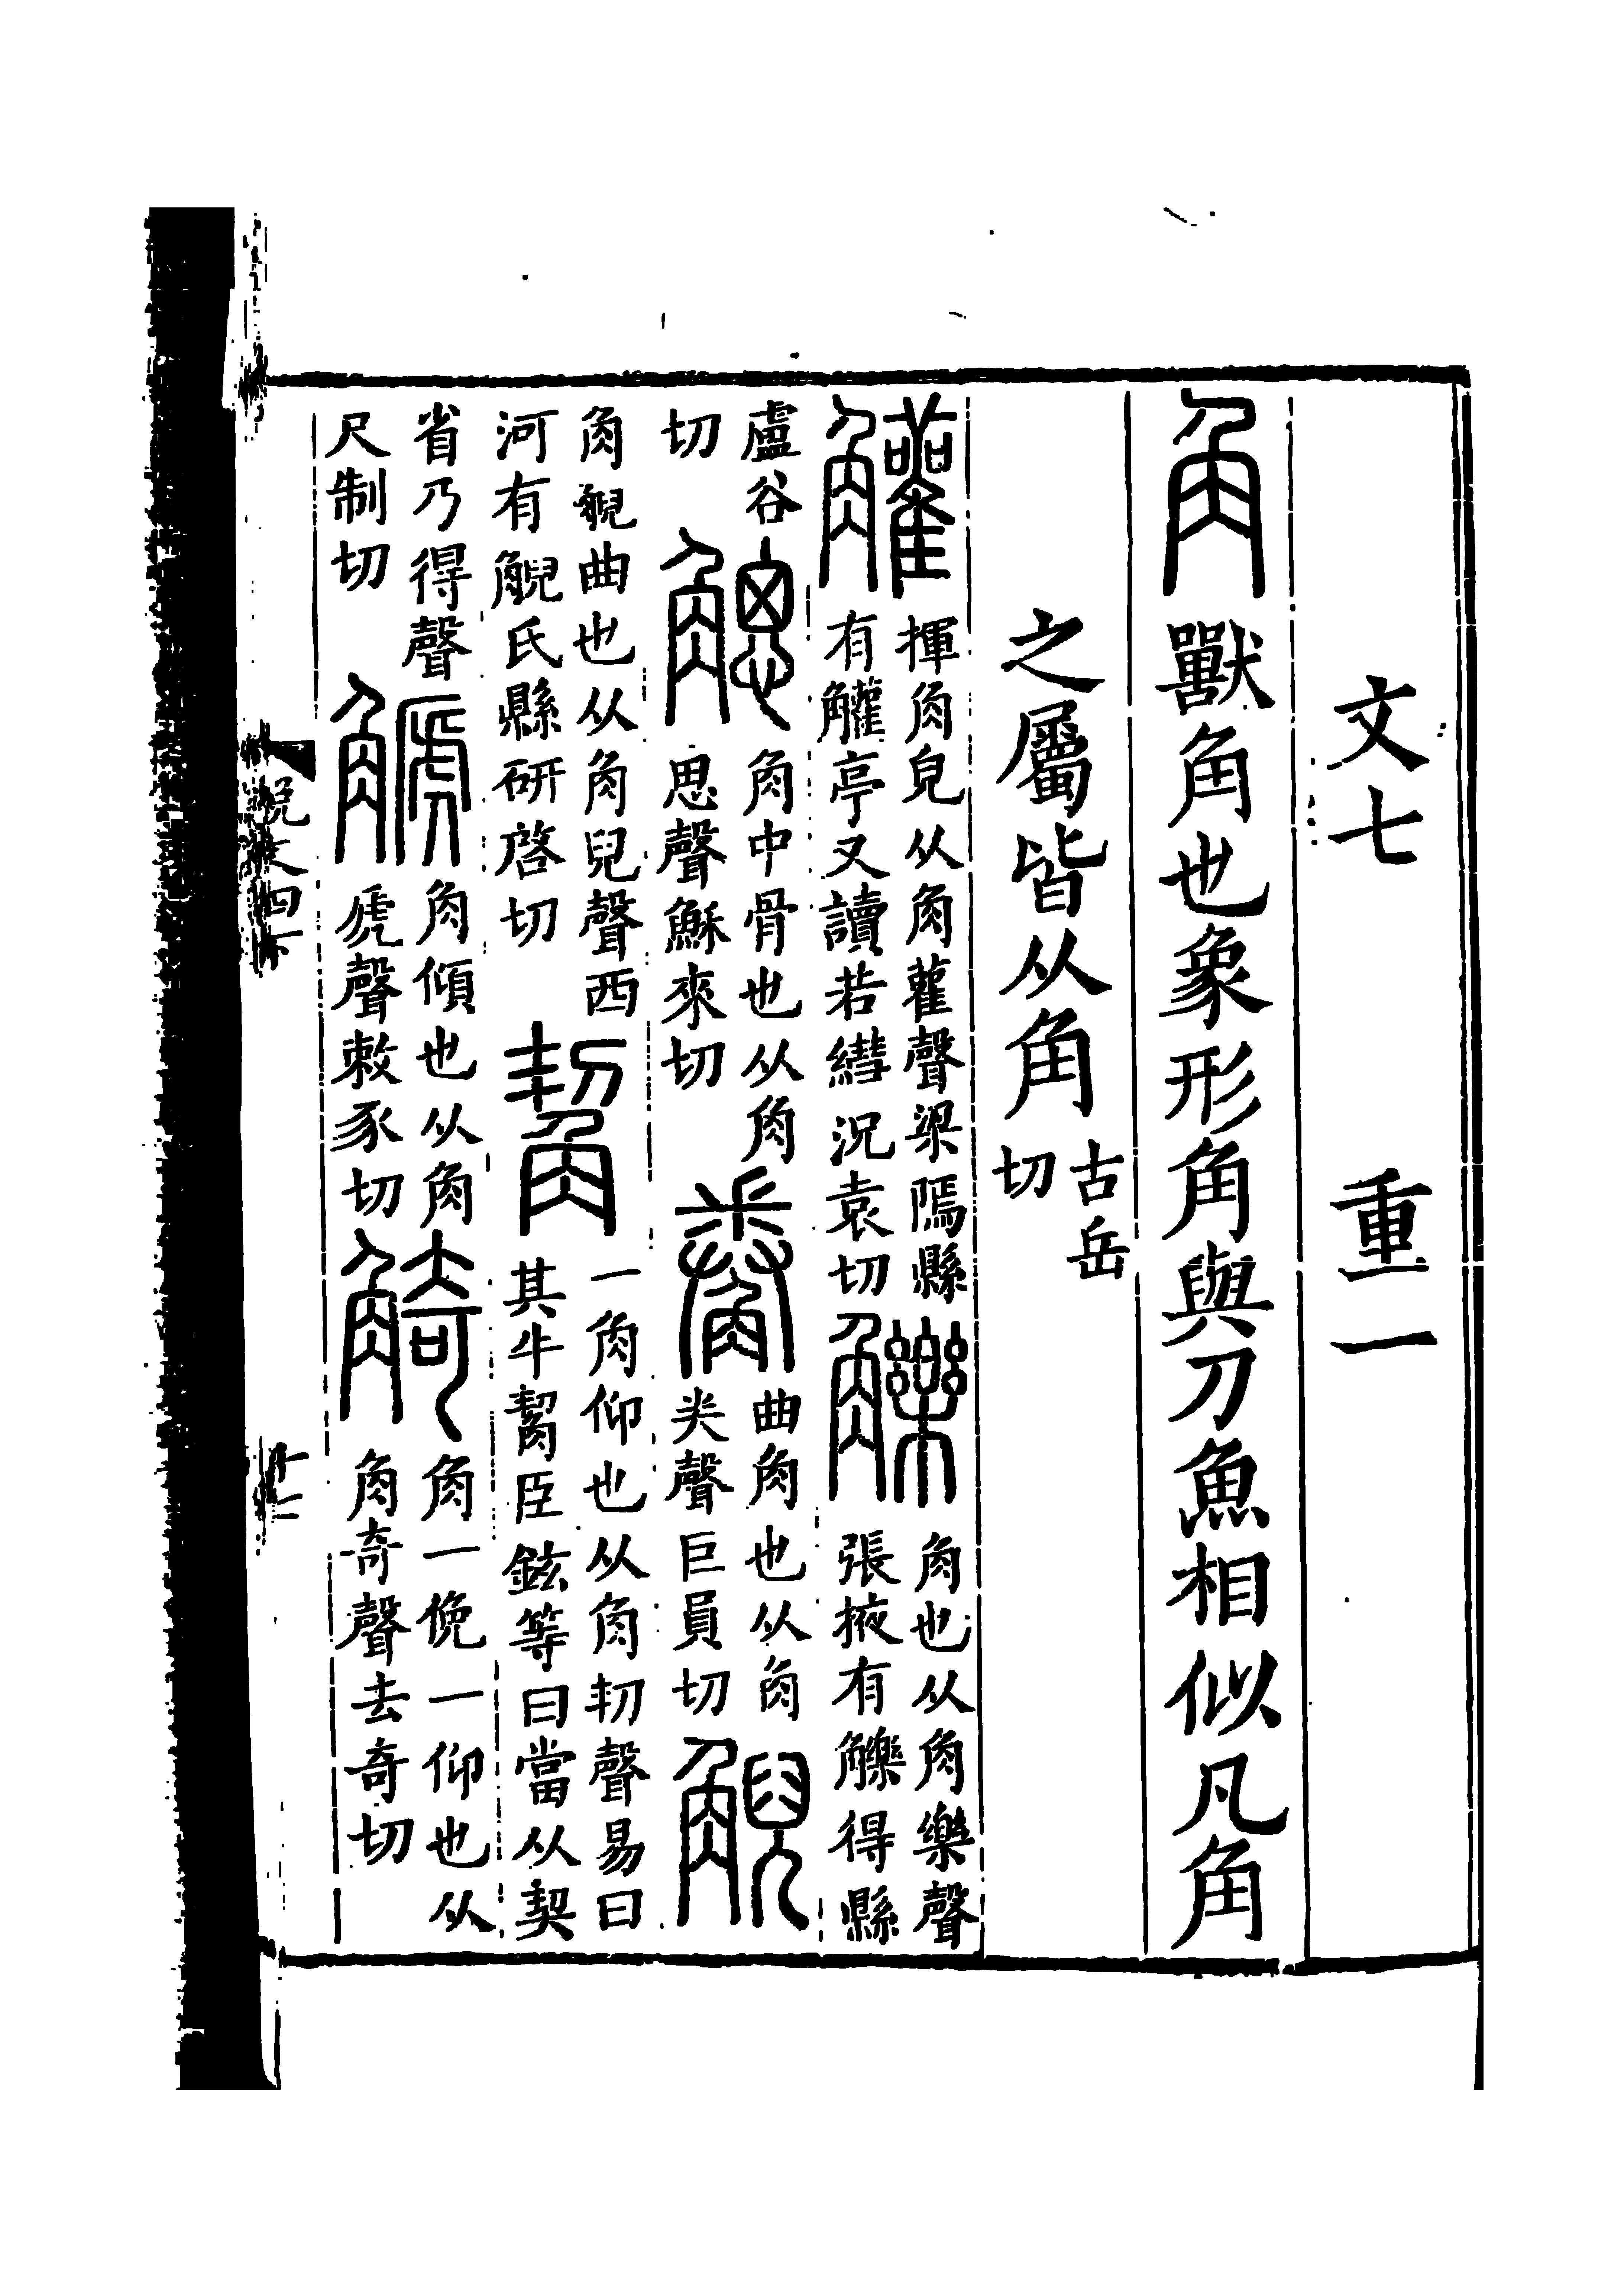 文七　重一
角獸角也象形角與刀魚相似凡角
之屬皆从角古岳切
䚭揮角皃从角雚聲梁隖縣有䚭亭又讀若繣況袁切觻角也从角樂聲張掖有觻得縣
盧谷切䚡角中骨也从角思聲穌來切觠曲角也从角𢍏聲巨員切觬
角觬曲也从角兒聲西河有觬氏縣研啓切觢一角仰也从角㓞聲易曰其牛觢臣鉉等曰當从契
省乃得聲尺制切䚦角傾也从角虒聲敕豕切觭角一俛一仰也从角奇聲去奇切
說文四下
十二